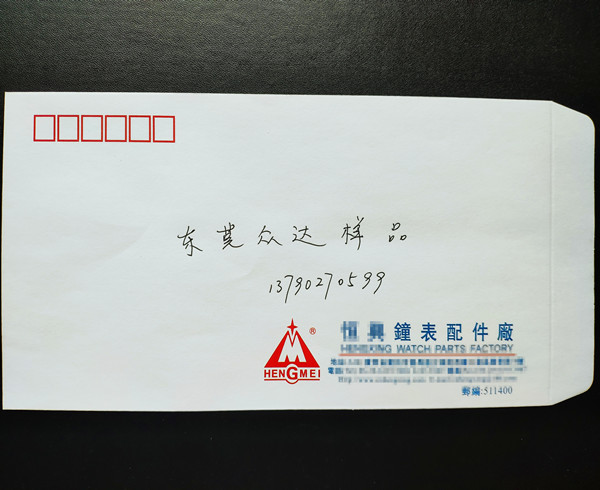 东莞众达样品
13790270599
HENGMEI
®
恒興鐘表配件廠
HENGXING WATCH PARTS FACTORY
郵編:511400